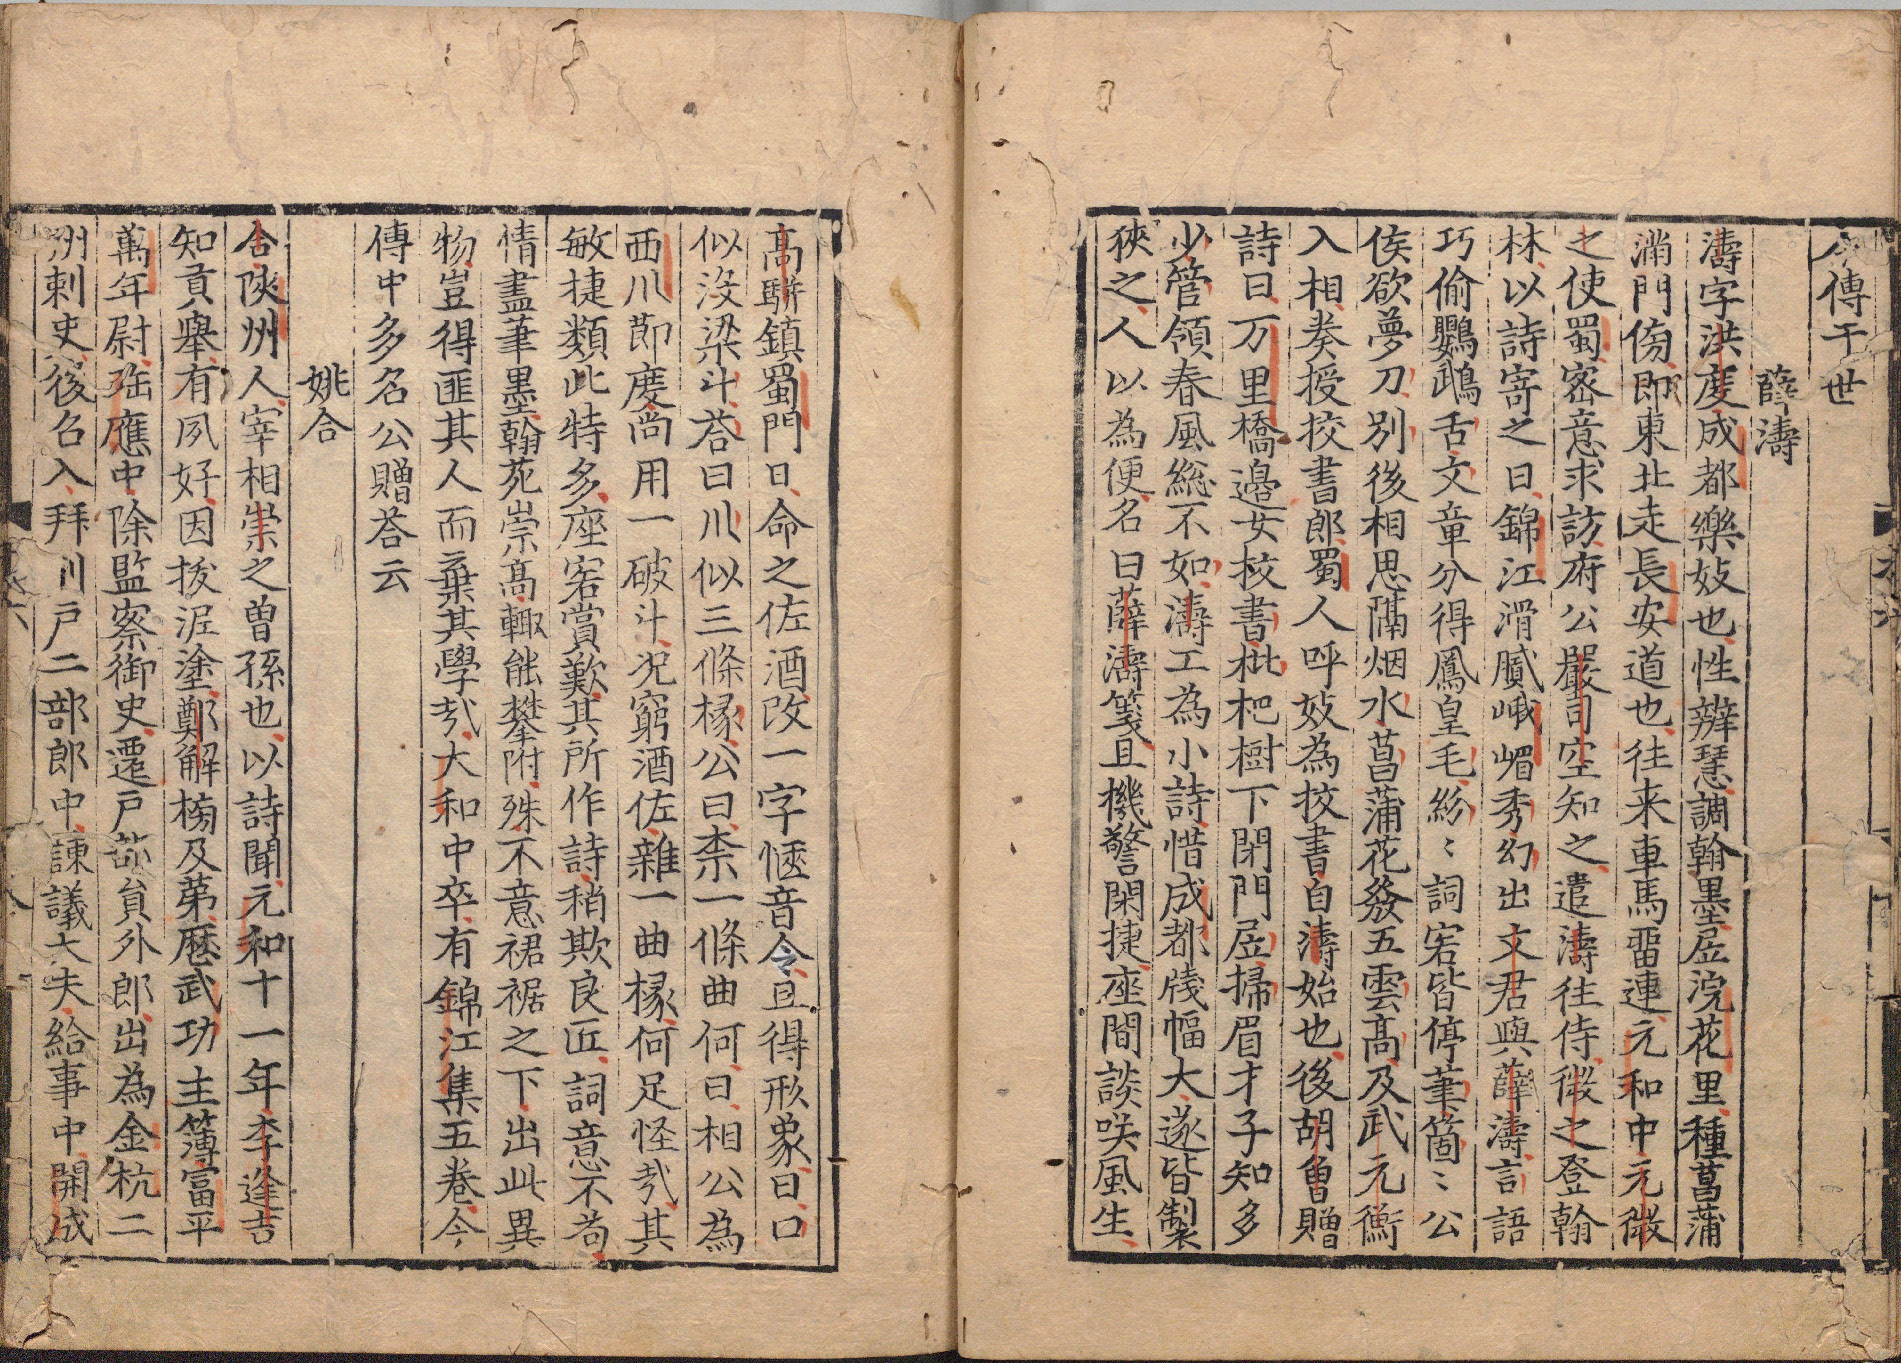 今傳于世
薛濤
濤字洪度成都樂妓也性辨慧調翰墨居浣花里種菖蒲
滿門傍即東北走長安道也往来車馬畱連元和中元微
之使蜀密意求訪府公嚴司空知之遣濤往侍微之登翰
林以詩寄之曰錦江滑膩峨嵋秀幻出文君與薛濤言語
巧偷鸚鵡舌文章分得鳳皇毛紛〻詞客皆停筆箇〻公
侯欲夢刀別後相思隔烟水菖蒲花發五雲高及武元衡
入相奏授挍書郎蜀人呼妓為挍書自濤始也後胡曾贈
詩曰万里橋邉女挍書枇杷樹下閉門居掃眉才子知多
少管領春風總不如濤工為小詩惜成都牋幅大遂皆製
狹之人以為便名曰薛濤箋且機警閑捷座間談咲風生
高駢鎮蜀門日命之佐酒改一字愜音令且得形象曰口
似沒梁斗荅曰川似三條椽公曰柰一條曲何曰相公為
西川節度尚用一破斗况窮酒佐雜一曲椽何足怪㢤其
敏捷類此特多座客賞歎其所作詩稍欺良匠詞意不苟
情盡筆墨翰苑崇高輙能攀附殊不意裙裾之下出此異
物豈得匪其人而棄其學㢤大和中卒有錦江集五卷今
傳中多名公贈荅云
姚合
合陝州人宰相崇之曽孫也以詩聞元和十一年李逢吉
知貢舉有夙好因拔泥塗鄭解榜及苐歷武功主簿富平
萬年尉寳應中除監察御史遷戸部貟外郎出為金杭二
州刺史後召入拜刑戸二部郎中諫議大夫給事中開成